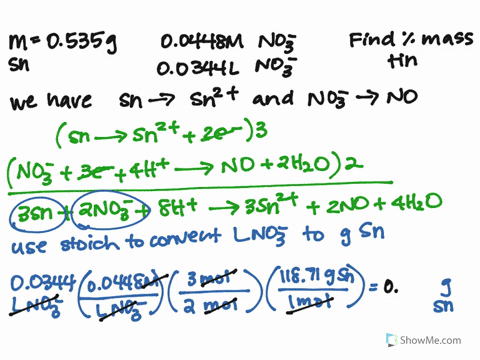 m = 0.535g 0.0448M NO₃⁻ Find % mass
sn 0.0344L NO₃⁻ tin
we have sn → Sn²⁺ and NO₃⁻ → NO
(sn → Sn²⁺ + 2e⁻)3
(NO₃⁻ + 3e⁻ + 4H⁺ → NO + 2H₂O)2
3sn + 2NO₃⁻ + 8H⁺ → 3Sn²⁺ + 2NO + 4H₂O
use stoich to convert LNO₃⁻ to g Sn
0.0344 LNO₃⁻ (0.0448M / LNO₃⁻) (3 mol / 2 mol) (118.71 g Sn / 1mol) = 0. g sn
ShowMe.com